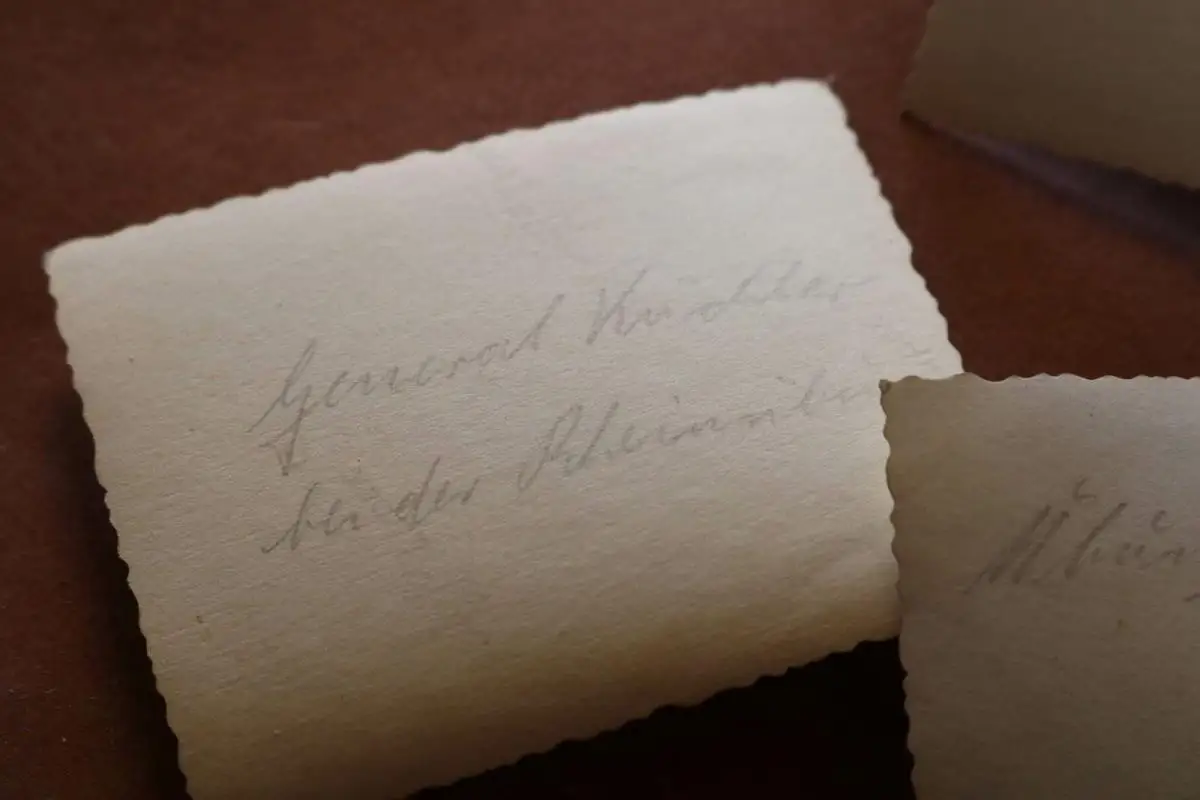 General Küchler
bei der Rheinüb
Übun